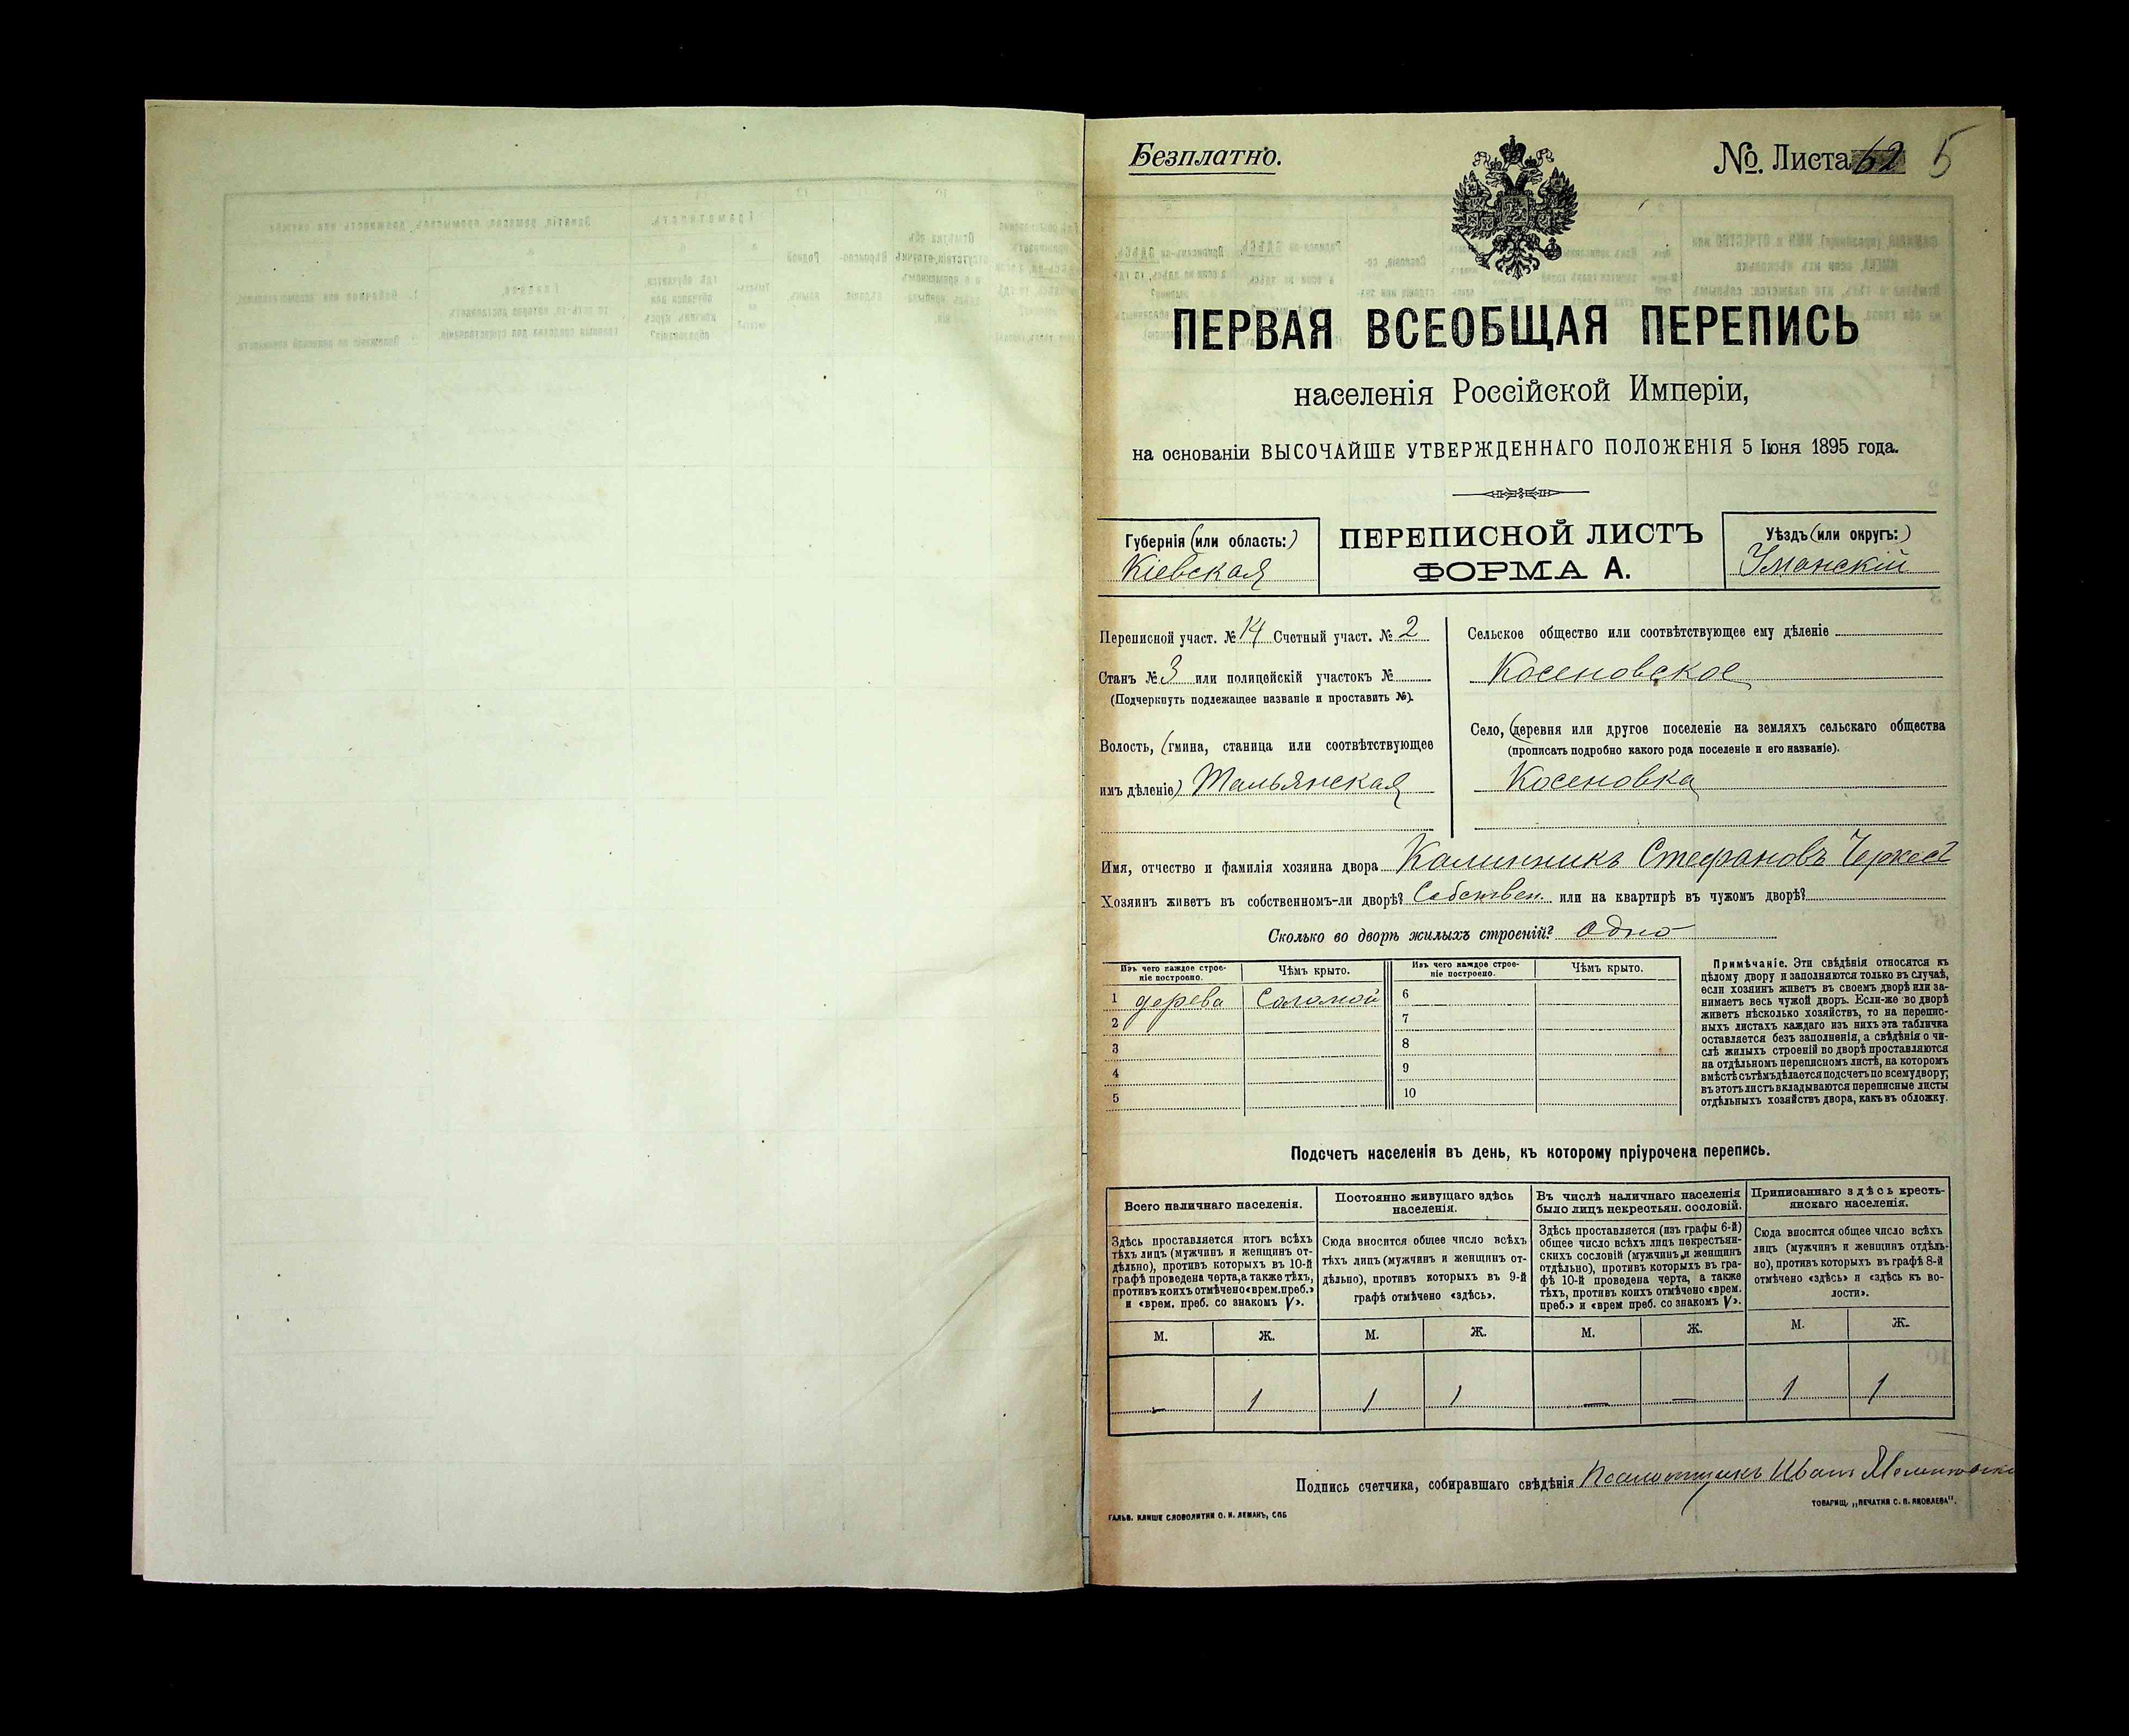 Безплатно.
№. Листа 62 5
ПЕРВАЯ ВСЕОБЩАЯ ПЕРЕПИСЬ
населенія Россійской Имперіи,
на основаніи ВЫСОЧАЙШЕ УТВЕРЖДЕННАГО ПОЛОЖЕНІЯ 5 Іюня 1895 года.
Губернія (или область:)
Кіевская
ПЕРЕПИСНОЙ ЛИСТЪ
ФОРМА А.
Уѣздъ (или округъ:)
Уманскій
Переписной участ. № 14 Счетный участ. № 2
Станъ № 3 или полицейскій участокъ №
(Подчеркнуть подлежащее названіе и проставить №).
Волость, (гмина, станица или соотвѣтствующее
имъ дѣленіе) Тальянская
Сельское общество или соотвѣтствующее ему дѣленіе
Косеновское
Село, (деревня или другое поселеніе на земляхъ сельскаго общества
(прописать подробно какого рода поселеніе и его названіе).
Косеновка
Имя, отчество и фамилія хозяина двора Калинникъ Стефановъ Черкесъ
Хозяинъ живетъ въ собственномъ-ли дворѣ? Собствен. или на квартирѣ въ чужомъ дворѣ?
Сколько во дворѣ жилыхъ строеній? Одно
Изъ чего каждое строе-
ніе построено.
Чѣмъ крыто.
Изъ чего каждое строе-
ніе построено.
Чѣмъ крыто.
1 дерева Соломой 6
2 7
3 8
4 9
5 10
Примѣчаніе. Эти свѣдѣнія относятся къ
цѣлому двору и заполняются только въ случаѣ,
если хозяинъ живетъ въ своемъ дворѣ или за-
нимаетъ весь чужой дворъ. Если-же во дворѣ
живетъ нѣсколько хозяйствъ, то на перепис-
ныхъ листахъ каждаго изъ нихъ эта табличка
оставляется безъ заполненія, а свѣдѣнія о чи-
слѣ жилыхъ строеній во дворѣ проставляются
на отдѣльномъ переписномъ листѣ, на которомъ
вмѣстѣ съ тѣмъ дѣлается подсчетъ по всему двору;
въ этотъ листъ вкладываются переписные листы
отдѣльныхъ хозяйствъ двора, какъ въ обложку.
Подсчетъ населенія въ день, къ которому пріурочена перепись.
Всего наличнаго населенія.
Здѣсь проставляется итогъ всѣхъ
тѣхъ лицъ (мужчинъ и женщинъ от-
дѣльно), противъ которыхъ въ 10-й
графѣ проведена черта, а также тѣхъ,
противъ коихъ отмѣчено «врем. преб.»
и «врем. преб. со знакомъ V».
Постоянно живущаго здѣсь
населенія.
Сюда вносится общее число всѣхъ
тѣхъ лицъ (мужчинъ и женщинъ от-
дѣльно), противъ которыхъ въ 9-й
графѣ отмѣчено «здѣсь».
Въ числѣ наличнаго населенія
было лицъ некрестьян. сословій.
Здѣсь проставляется (изъ графы 6-й)
общее число всѣхъ лицъ некрестьян-
скихъ сословій (мужчинъ и женщинъ
отдѣльно), противъ которыхъ въ гра-
фѣ 10-й проведена черта, а также
тѣхъ, противъ коихъ отмѣчено «врем.
преб.» и «врем преб. со знакомъ V».
Приписаннаго здѣсь кресть-
янскаго населенія.
Сюда вносится общее число всѣхъ
лицъ (мужчинъ и женщинъ отдѣль-
но), противъ которыхъ въ графѣ 8-й
отмѣчено «здѣсь» и «здѣсь къ во-
лости».
М. Ж. М. Ж. М. Ж. М. Ж.
— 1 1 1 — — 1 1
Подпись счетчика, собиравшаго свѣдѣнія Псаломщикъ Иванъ
ГАЛЬВ. КЛИШЕ СЛОВОЛИТНИ О. И. ЛЕМАНЪ, СПБ
ТОВАРИЩ. „ПЕЧАТНЯ С. П. ЯКОВЛЕВА".